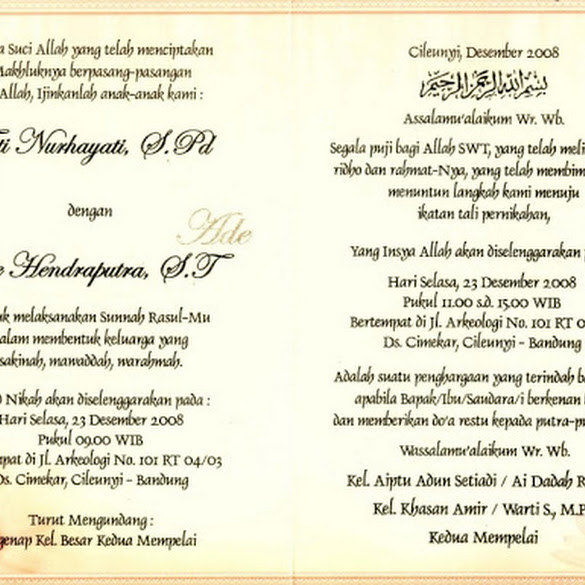 a Suci Allah yang telah menciptakan
Makhluknya berpasang-pasangan
Allah, Ijinkanlah anak-anak kami :
ti Nurhayati, S.Pd
dengan
Ade
e Hendraputra, S.T
uk melaksanakan Sunnah Rasul-Mu
alam membentuk keluarga yang
sakinah, mawaddah, warahmah.
d Nikah akan diselenggarakan pada :
Hari Selasa, 23 Desember 2008
Pukul 09.00 WIB
mpat di Jl. Arkeologi No. 101 RT 04/03
Ds. Cimekar, Cileunyi - Bandung
Turut Mengundang :
genap Kel. Besar Kedua Mempelai
Cileunyi, Desember 2008
بسم الله الرحمن الرحيم
Assalamu'alaikum Wr. Wb.
Segala puji bagi Allah SWT, yang telah meli
ridho dan rahmat-Nya, yang telah membim
menuntun langkah kami menuju
ikatan tali pernikahan,
Yang Insya Allah akan diselenggarakan p
Hari Selasa, 23 Desember 2008
Pukul 11.00 s.d. 15.00 WIB
Bertempat di Jl. Arkeologi No. 101 RT 0
Ds. Cimekar, Cileunyi - Bandung
Adalah suatu penghargaan yang terindah b
apabila Bapak/Ibu/Saudara/i berkenan
dan memberikan do'a restu kepada putra-pu
Wassalamu'alaikum Wr. Wb.
Kel. Aiptu Adun Setiadi / Ai Dadah R
Kel. Khasan Amir / Warti S., M.P
Kedua Mempelai